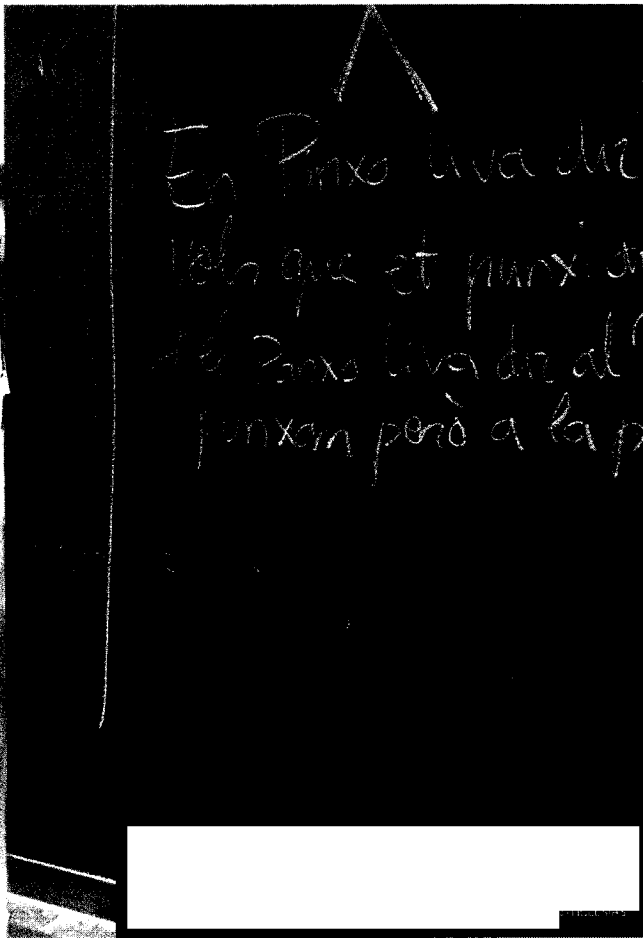 En Pinxo li va dir
Vols que et punxi
Panxo li va dir al
punxan però a la p